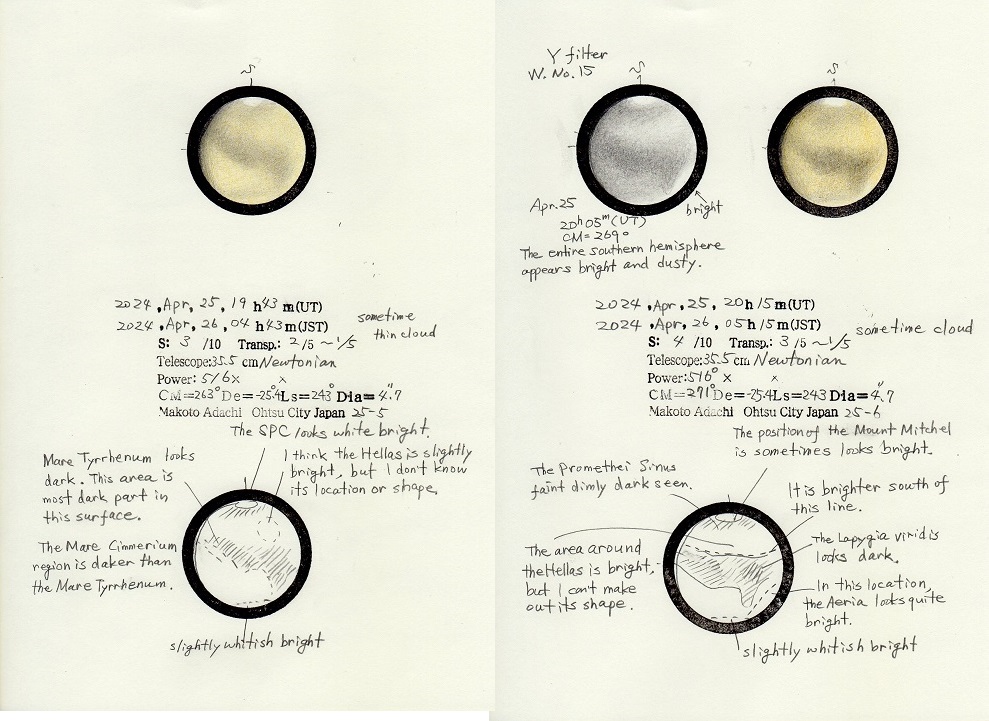 S
2024, Apr, 25, 19 h 43 m (UT)
2024, Apr, 26, 04 h 43 m (JST)
S: 3 /10 Transp.: 2/5 ~ 1/5
sometime
thin cloud
Telescope: 35.5 cm Newtonian
Power: 516 x x
CM=263° De=-25.4° Ls=243° Dia=4".7
Makoto Adachi Ohtsu City Japan 25-5
The SPC looks white bright.
Mare Tyrrhenum looks
dark. This area is
most dark part in
this surface.
I think the Hellas is slightly
bright, but I don't know
its location or shape.
The Mare Cimmerium
region is daker than
the Mare Tyrrhenum.
slightly whitish bright
Y filter
W. No. 15
S
S
bright
Apr. 25
20h 05m (UT)
CM= 269°
The entire southern hemisphere
appears bright and dusty.
2024, Apr, 25, 20 h 15 m (UT)
2024, Apr, 26, 05 h 15 m (JST)
S: 4 /10 Transp.: 3/5 ~ 1/5
sometime cloud
Telescope: 35.5 cm Newtonian
Power: 516° x x
CM=271° De=-25.4 Ls=243 Dia=4".7
Makoto Adachi Ohtsu City Japan 25-6
The position of the Mount Mitchel
is sometimes looks bright.
The Promethei Sinus
faint dimly dark seen.
It is brighter south of
this line.
The Iapygia viridis
looks dark.
The area around
the Hellas is bright,
but I can't make
out its shape.
In this location,
the Aeria looks quite
bright.
slightly whitish bright